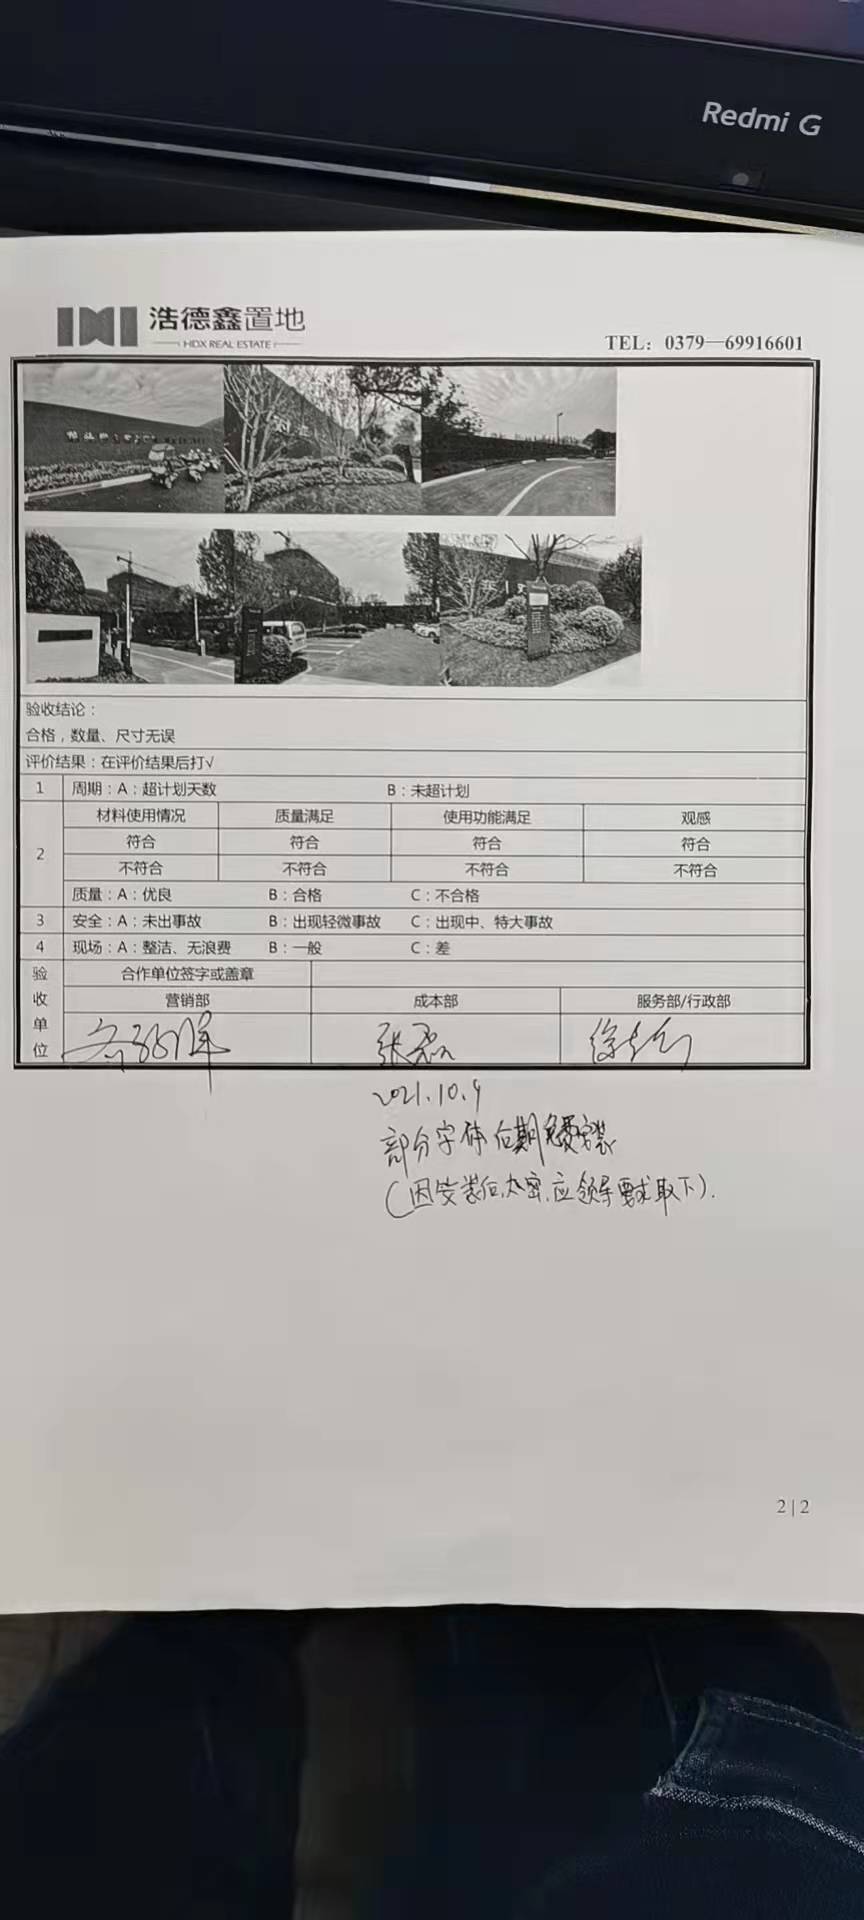 Redmi G
浩德鑫置地
HDX REAL ESTATE
TEL：0379—69916601
验收结论：
合格，数量、尺寸无误
评价结果：在评价结果后打√
1 周期：A：超计划天数 B：未超计划
材料使用情况 质量满足 使用功能满足 观感
符合 符合 符合 符合
2
不符合 不符合 不符合 不符合
质量：A：优良 B：合格 C：不合格
3 安全：A：未出事故 B：出现轻微事故 C：出现中、特大事故
4 现场：A：整洁、无浪费 B：一般 C：差
验收单位
合作单位签字或盖章
营销部 成本部 服务部/行政部
2021.10.9
部分字体后期免费安装
（因安装后，太密，应领导要求取下）.
2 | 2